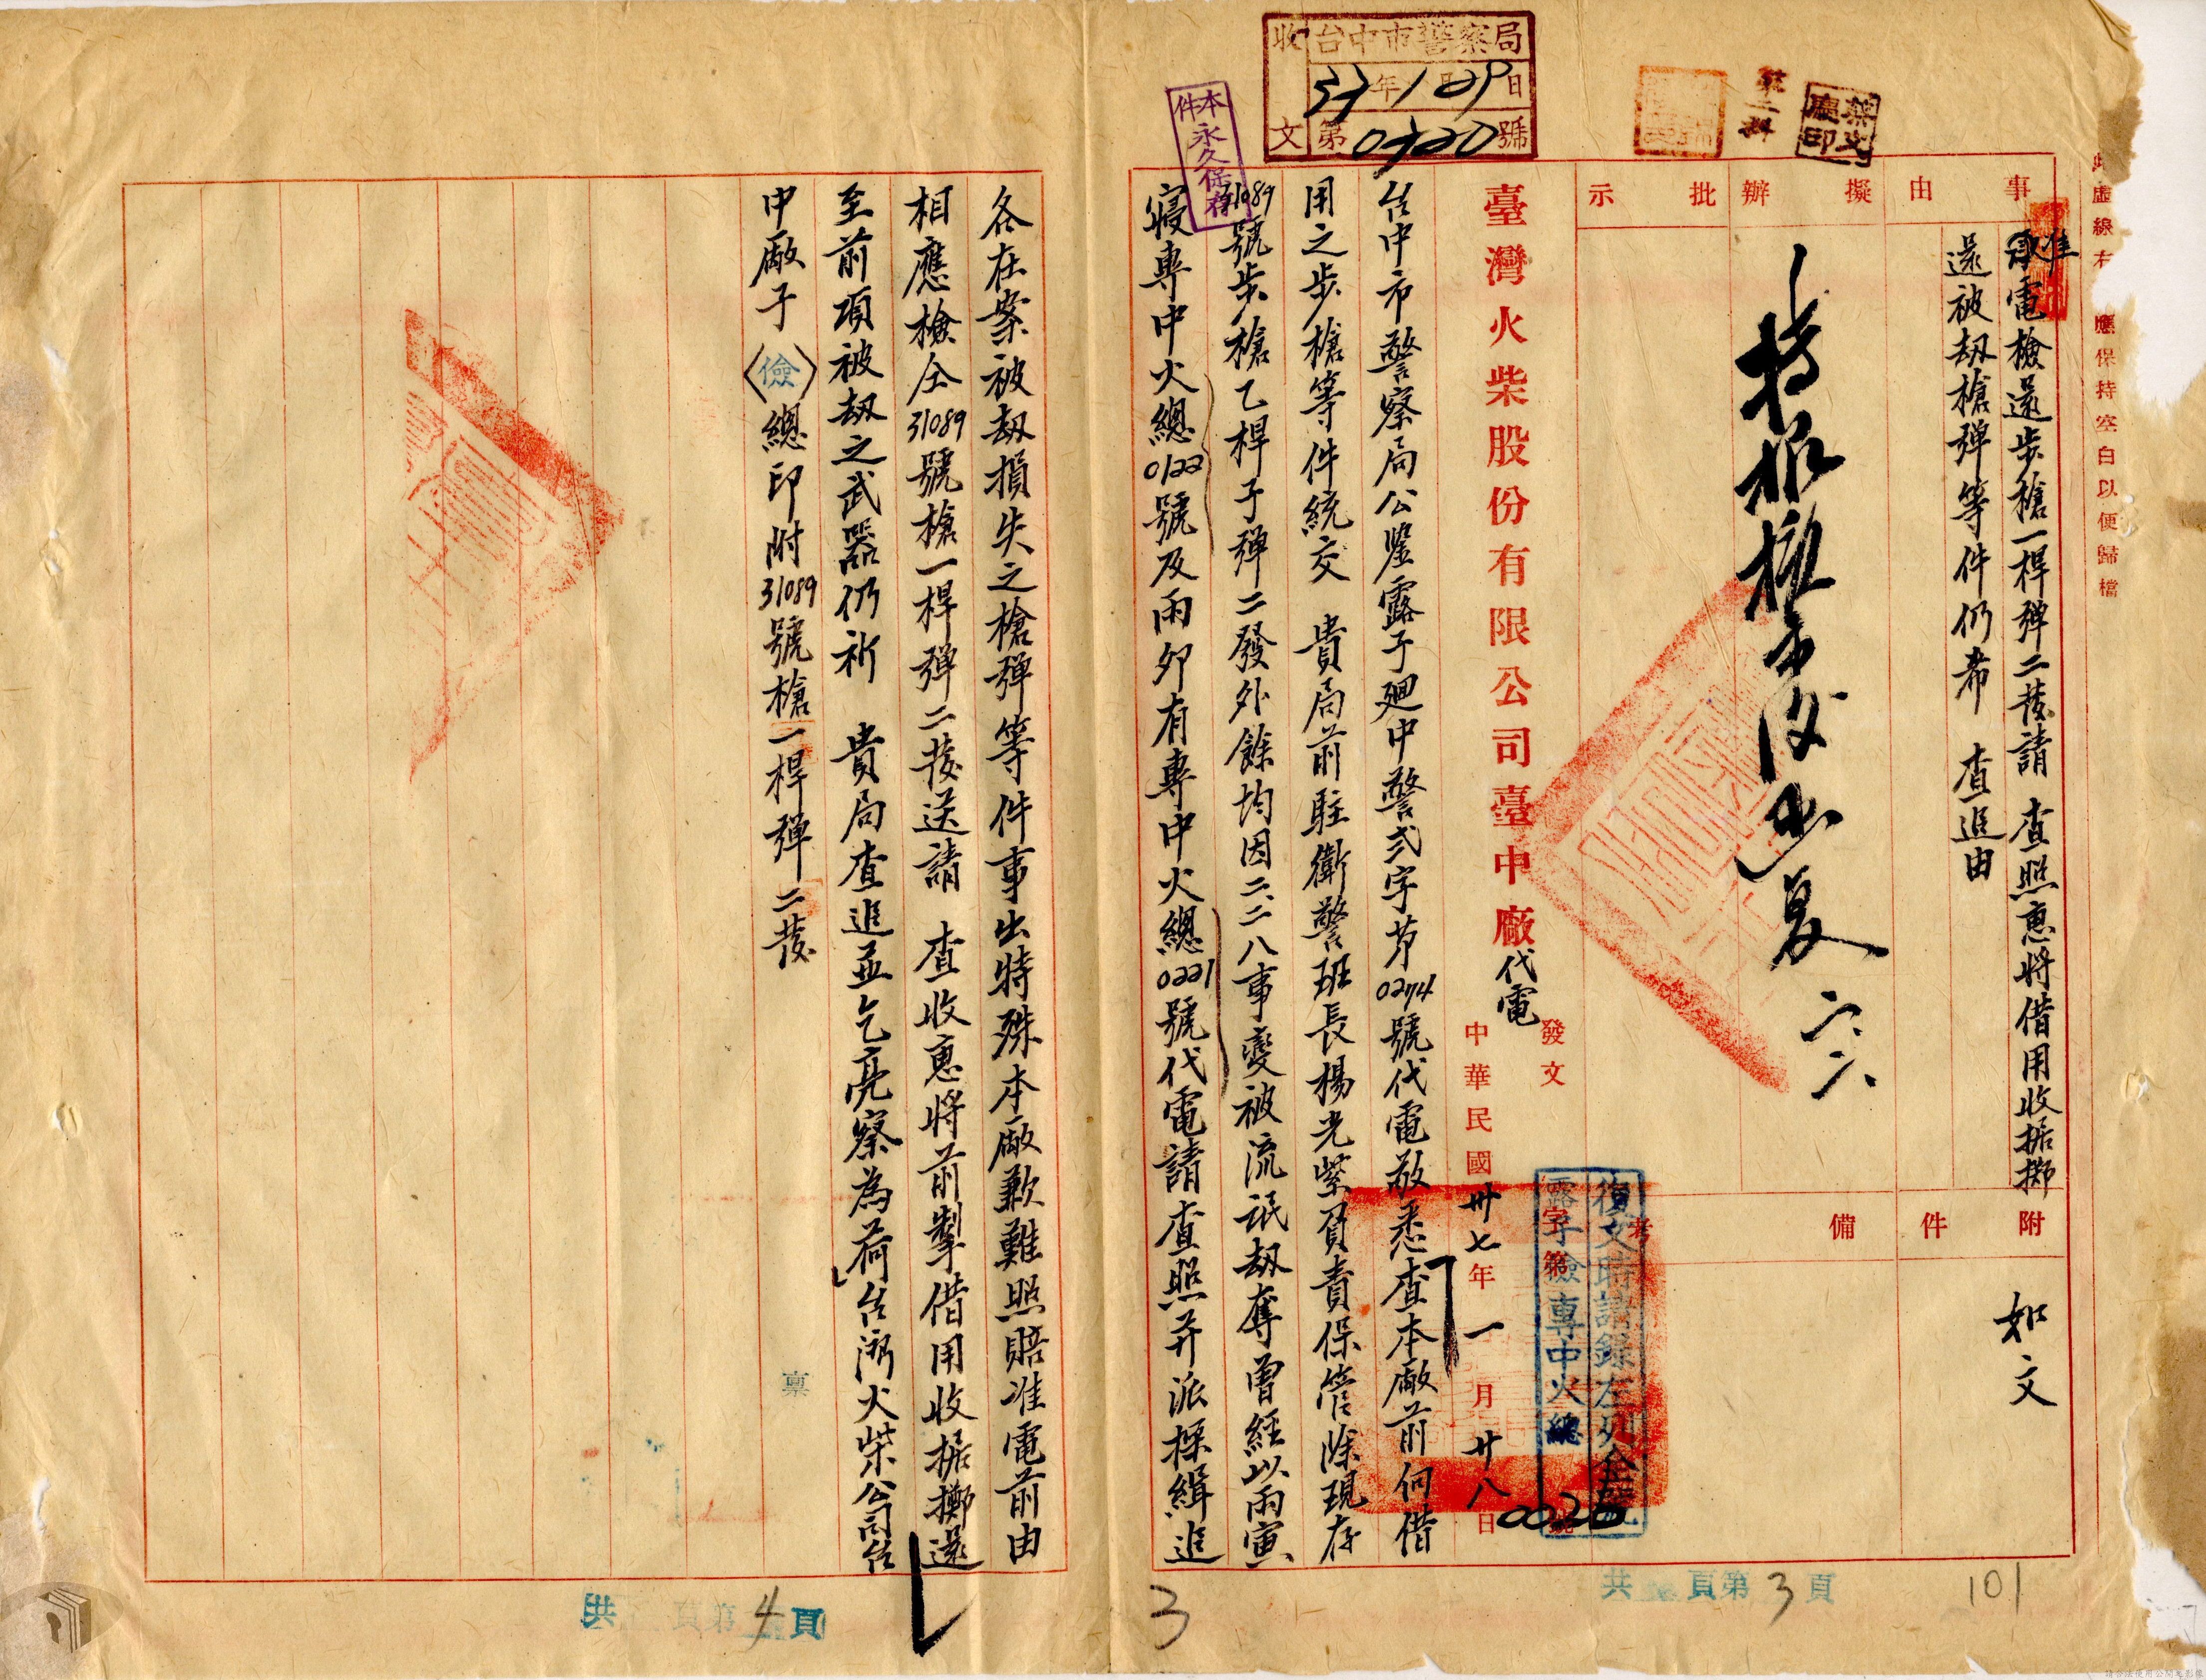 收文
台中市警察局
37年1月29日
第0720號
本件永久保存
第二科
事由
擬辦
批示
附件
備考
准電檢還步槍一桿彈二發請 查照惠將借用收据擲
還被刼槍彈等件仍希 查追由
如文
臺灣火柴股份有限公司臺中廠代電
發文
中華民國卅七年一月廿八日
復文時請錄左列全號
露子儉專中火總
字第0026號
台中市警察局公鑒露子廻中警弍字苐0274號代電敬悉查本廠前向借
用之步槍等件統交 貴局前駐衛警班長楊光紫負責保管除現存
31089號步槍乙桿子彈二發外餘均因二、二八事變被流氓刼奪曾經以雨寅、
寑專中火總0122號及雨卯有專中火總0221號代電請查照并派探緝追
各在案被刼損失之槍彈等件事出特殊本廠歉難照賠准電前由
相應檢仝31089號槍一桿彈二發送請 查收惠將前掣借用收据擲還
至前項被刼之武器仍祈 貴局查追並乞亮察為荷台灣火柴公司台
中廠子〈儉〉總印附31089號槍一桿彈二發
共 頁第3頁
共 頁第4頁
3
101